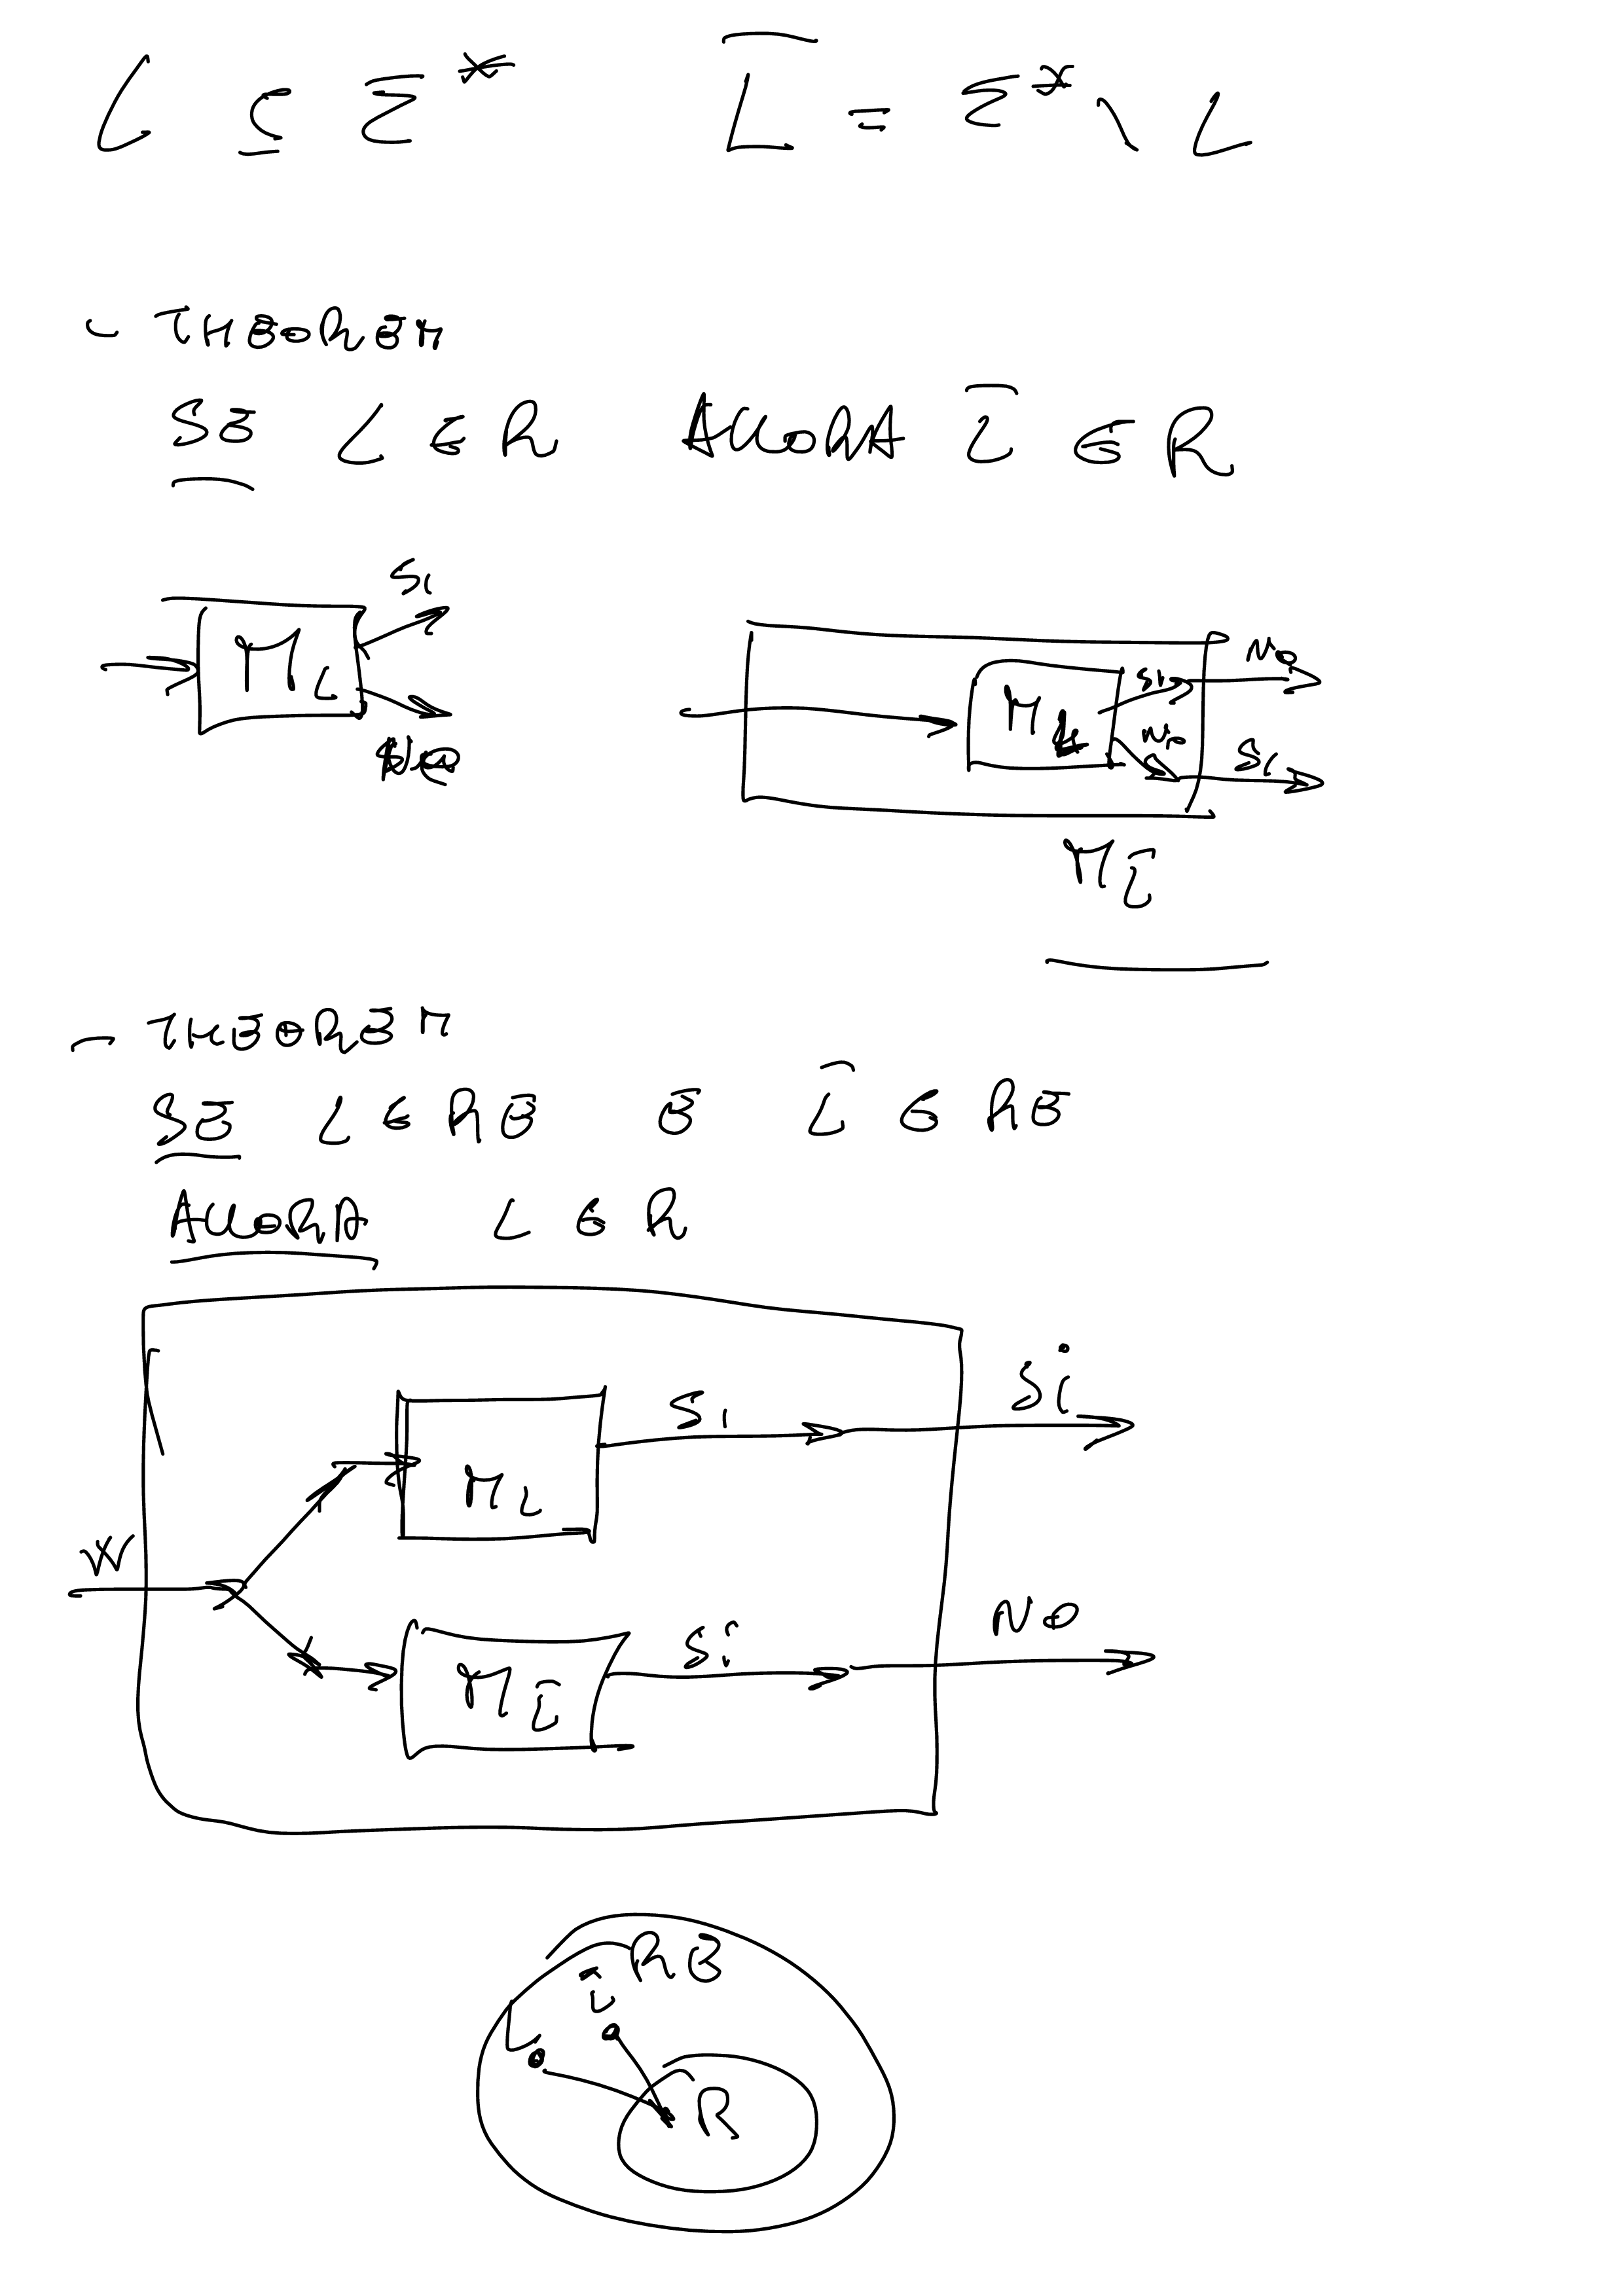 L ⊆ Σ* L̅ = Σ* \ L
- THEOREM
SE L ∈ R ALLORA L̅ ∈ R
M_L SI NO
M_L SI NO NO SI
M_L̅
- THEOREM
SE L ∈ RE E L̅ ∈ RE
ALLORA L ∈ R
W
M_L SI Si
M_L̅ Si NO
RE
L̅
L
R